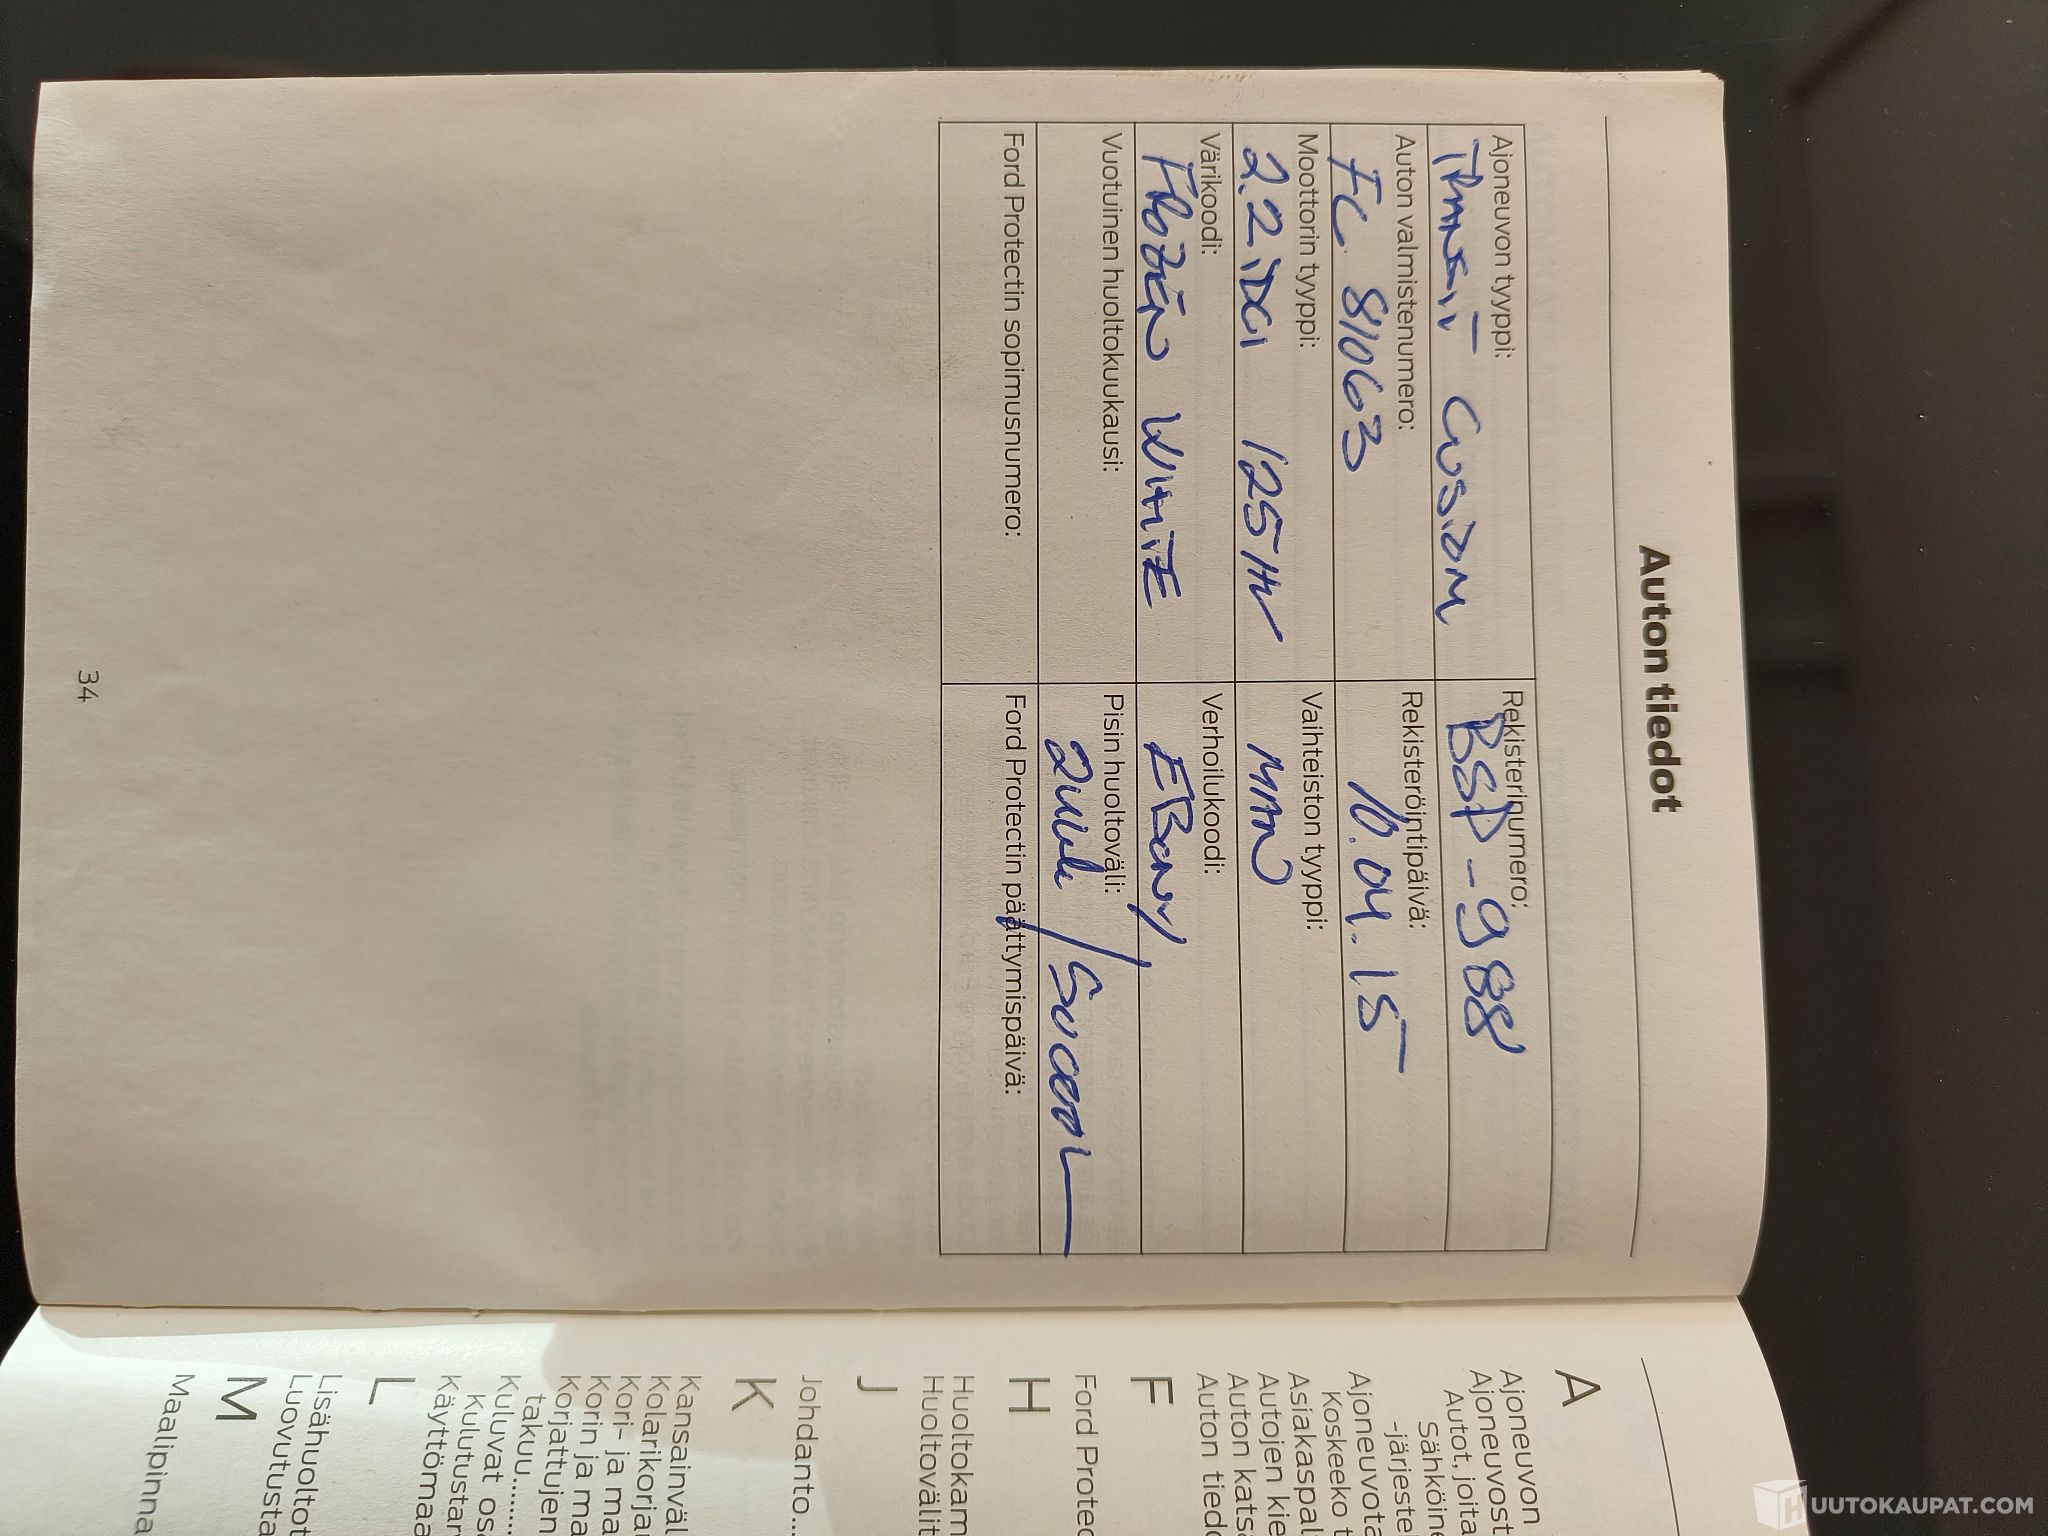 Auton tiedot
Ajoneuvon tyyppi:
TRANSIT CUSTOM
Rekisterinumero:
BSP-988
Auton valmistenumero:
FC 81063
Rekisteröintipäivä:
10.04.15
Moottorin tyyppi:
2.2 TDCI 125 HV
Vaihteiston tyyppi:
MAN
Värikoodi:
FROZEN WHITE
Verhoilukoodi:
EBONY
Vuotuinen huoltokuukausi:
Pisin huoltoväli:
Ford Protectin sopimusnumero:
Ford Protectin päättymispäivä:
34
A
Ajoneuvon
Ajoneuvost
Autot, joita
Sähköine
-järjestel
Ajoneuvota
Koskeeko t
Asiakaspal
Autojen kie
Auton kats
Auton tiedo
F
Ford Protec
H
Huoltokam
Huoltovälit
J
Johdanto...
K
Kansainväl
Kolarikorja
Kori- ja ma
Korin ja ma
Korjattujen
takuu........
Kuluvat osa
Kulutustar
Käyttömaa
L
Lisähuoltot
Luovutusta
M
Maalipinna
HUUTOKAUPAT.COM